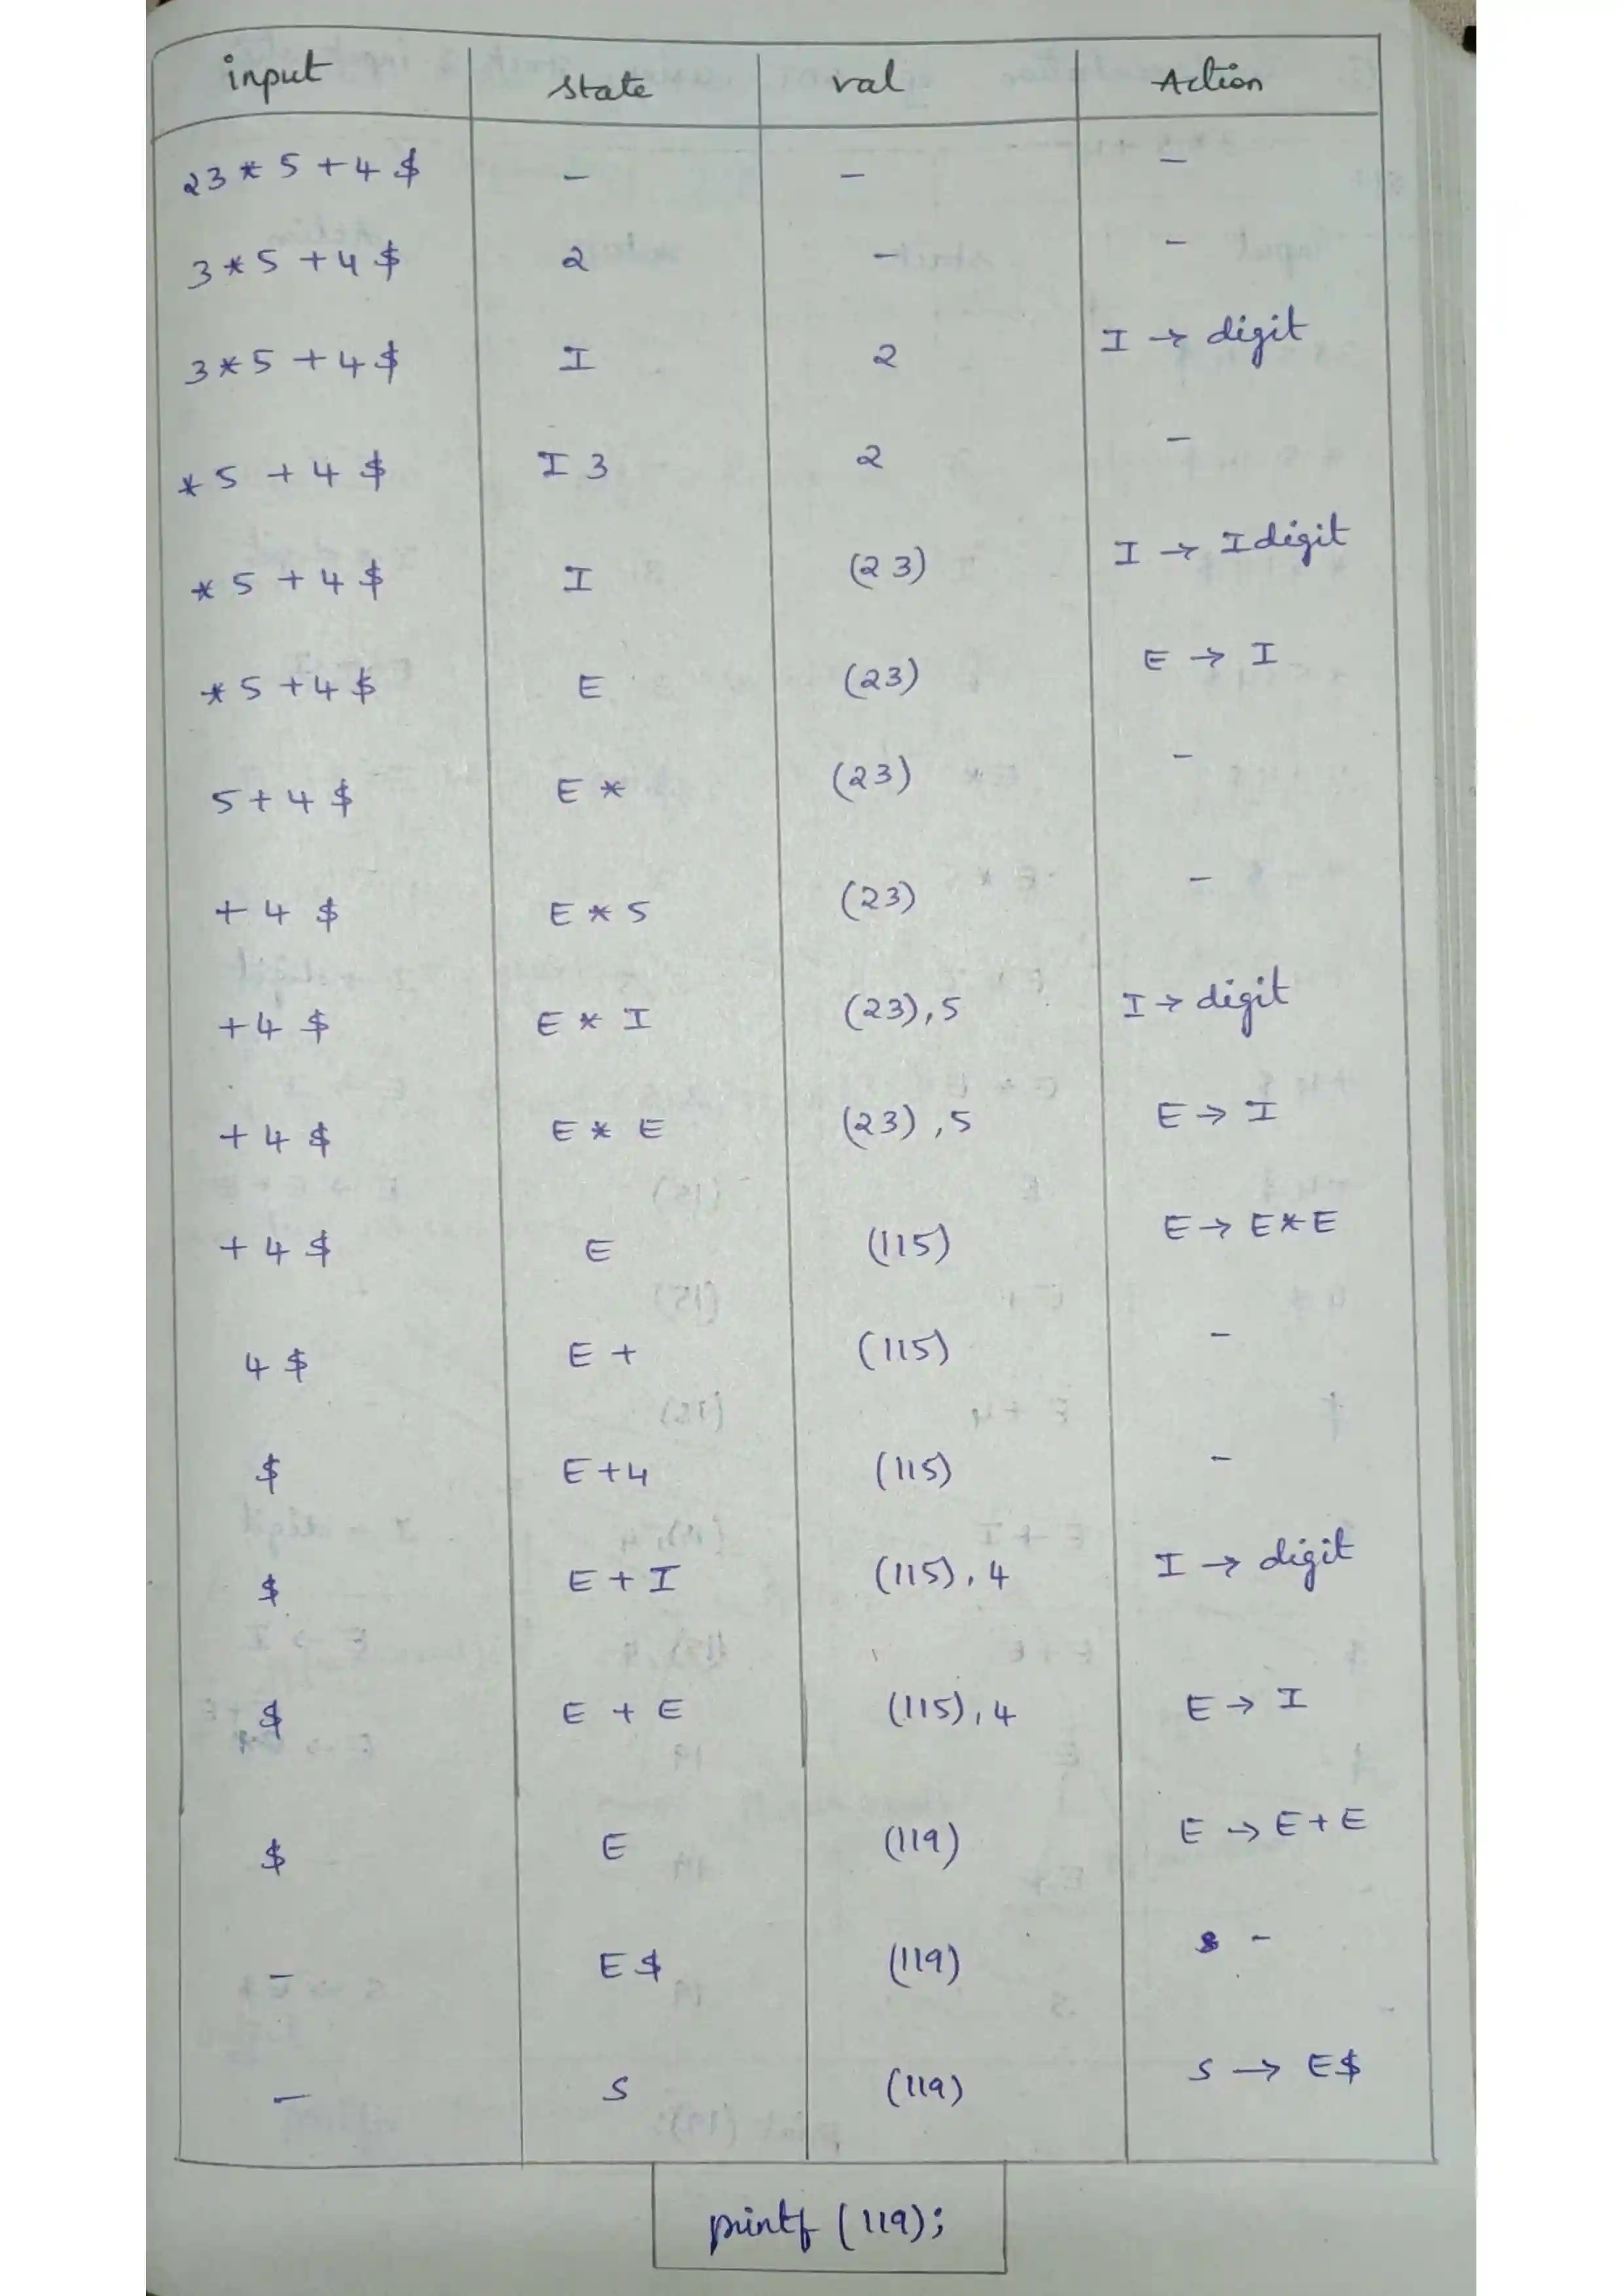 input state val Action
23 * 5 + 4 $ - - -
3 * 5 + 4 $ 2 - -
3 * 5 + 4 $ I 2 I → digit
* 5 + 4 $ I 3 2 -
* 5 + 4 $ I (23) I → I digit
* 5 + 4 $ E (23) E → I
5 + 4 $ E * (23) -
+ 4 $ E * 5 (23) -
+ 4 $ E * I (23), 5 I → digit
+ 4 $ E * E (23), 5 E → I
+ 4 $ E (115) E → E * E
4 $ E + (115) -
$ E + 4 (115) -
$ E + I (115), 4 I → digit
$ E + E (115), 4 E → I
$ E (119) E → E + E
- E $ (119) -
- S (119) S → E $
printf (119);